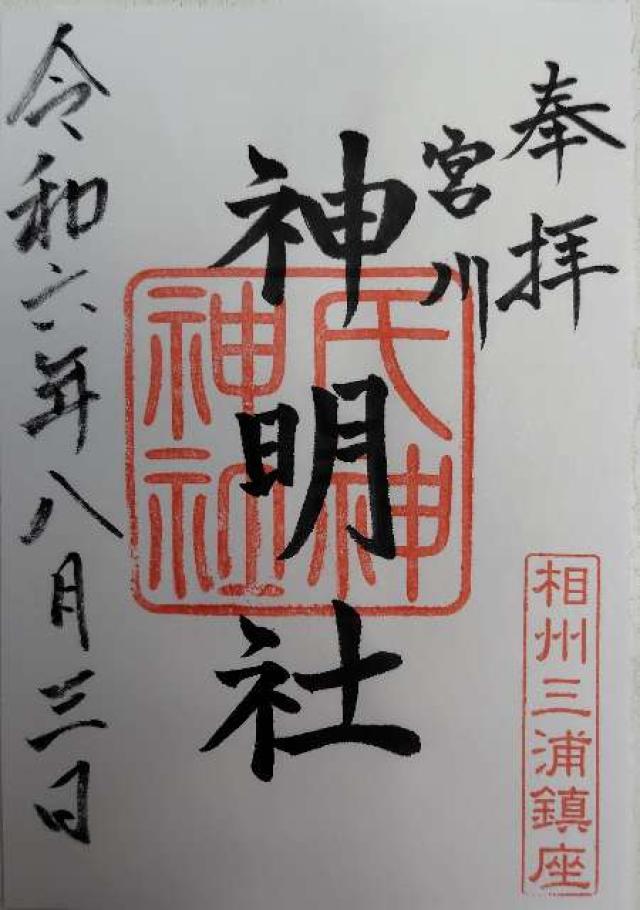 奉拝
宮川
神明社
氏神
神社
相州三浦鎮座
令和六年八月三日